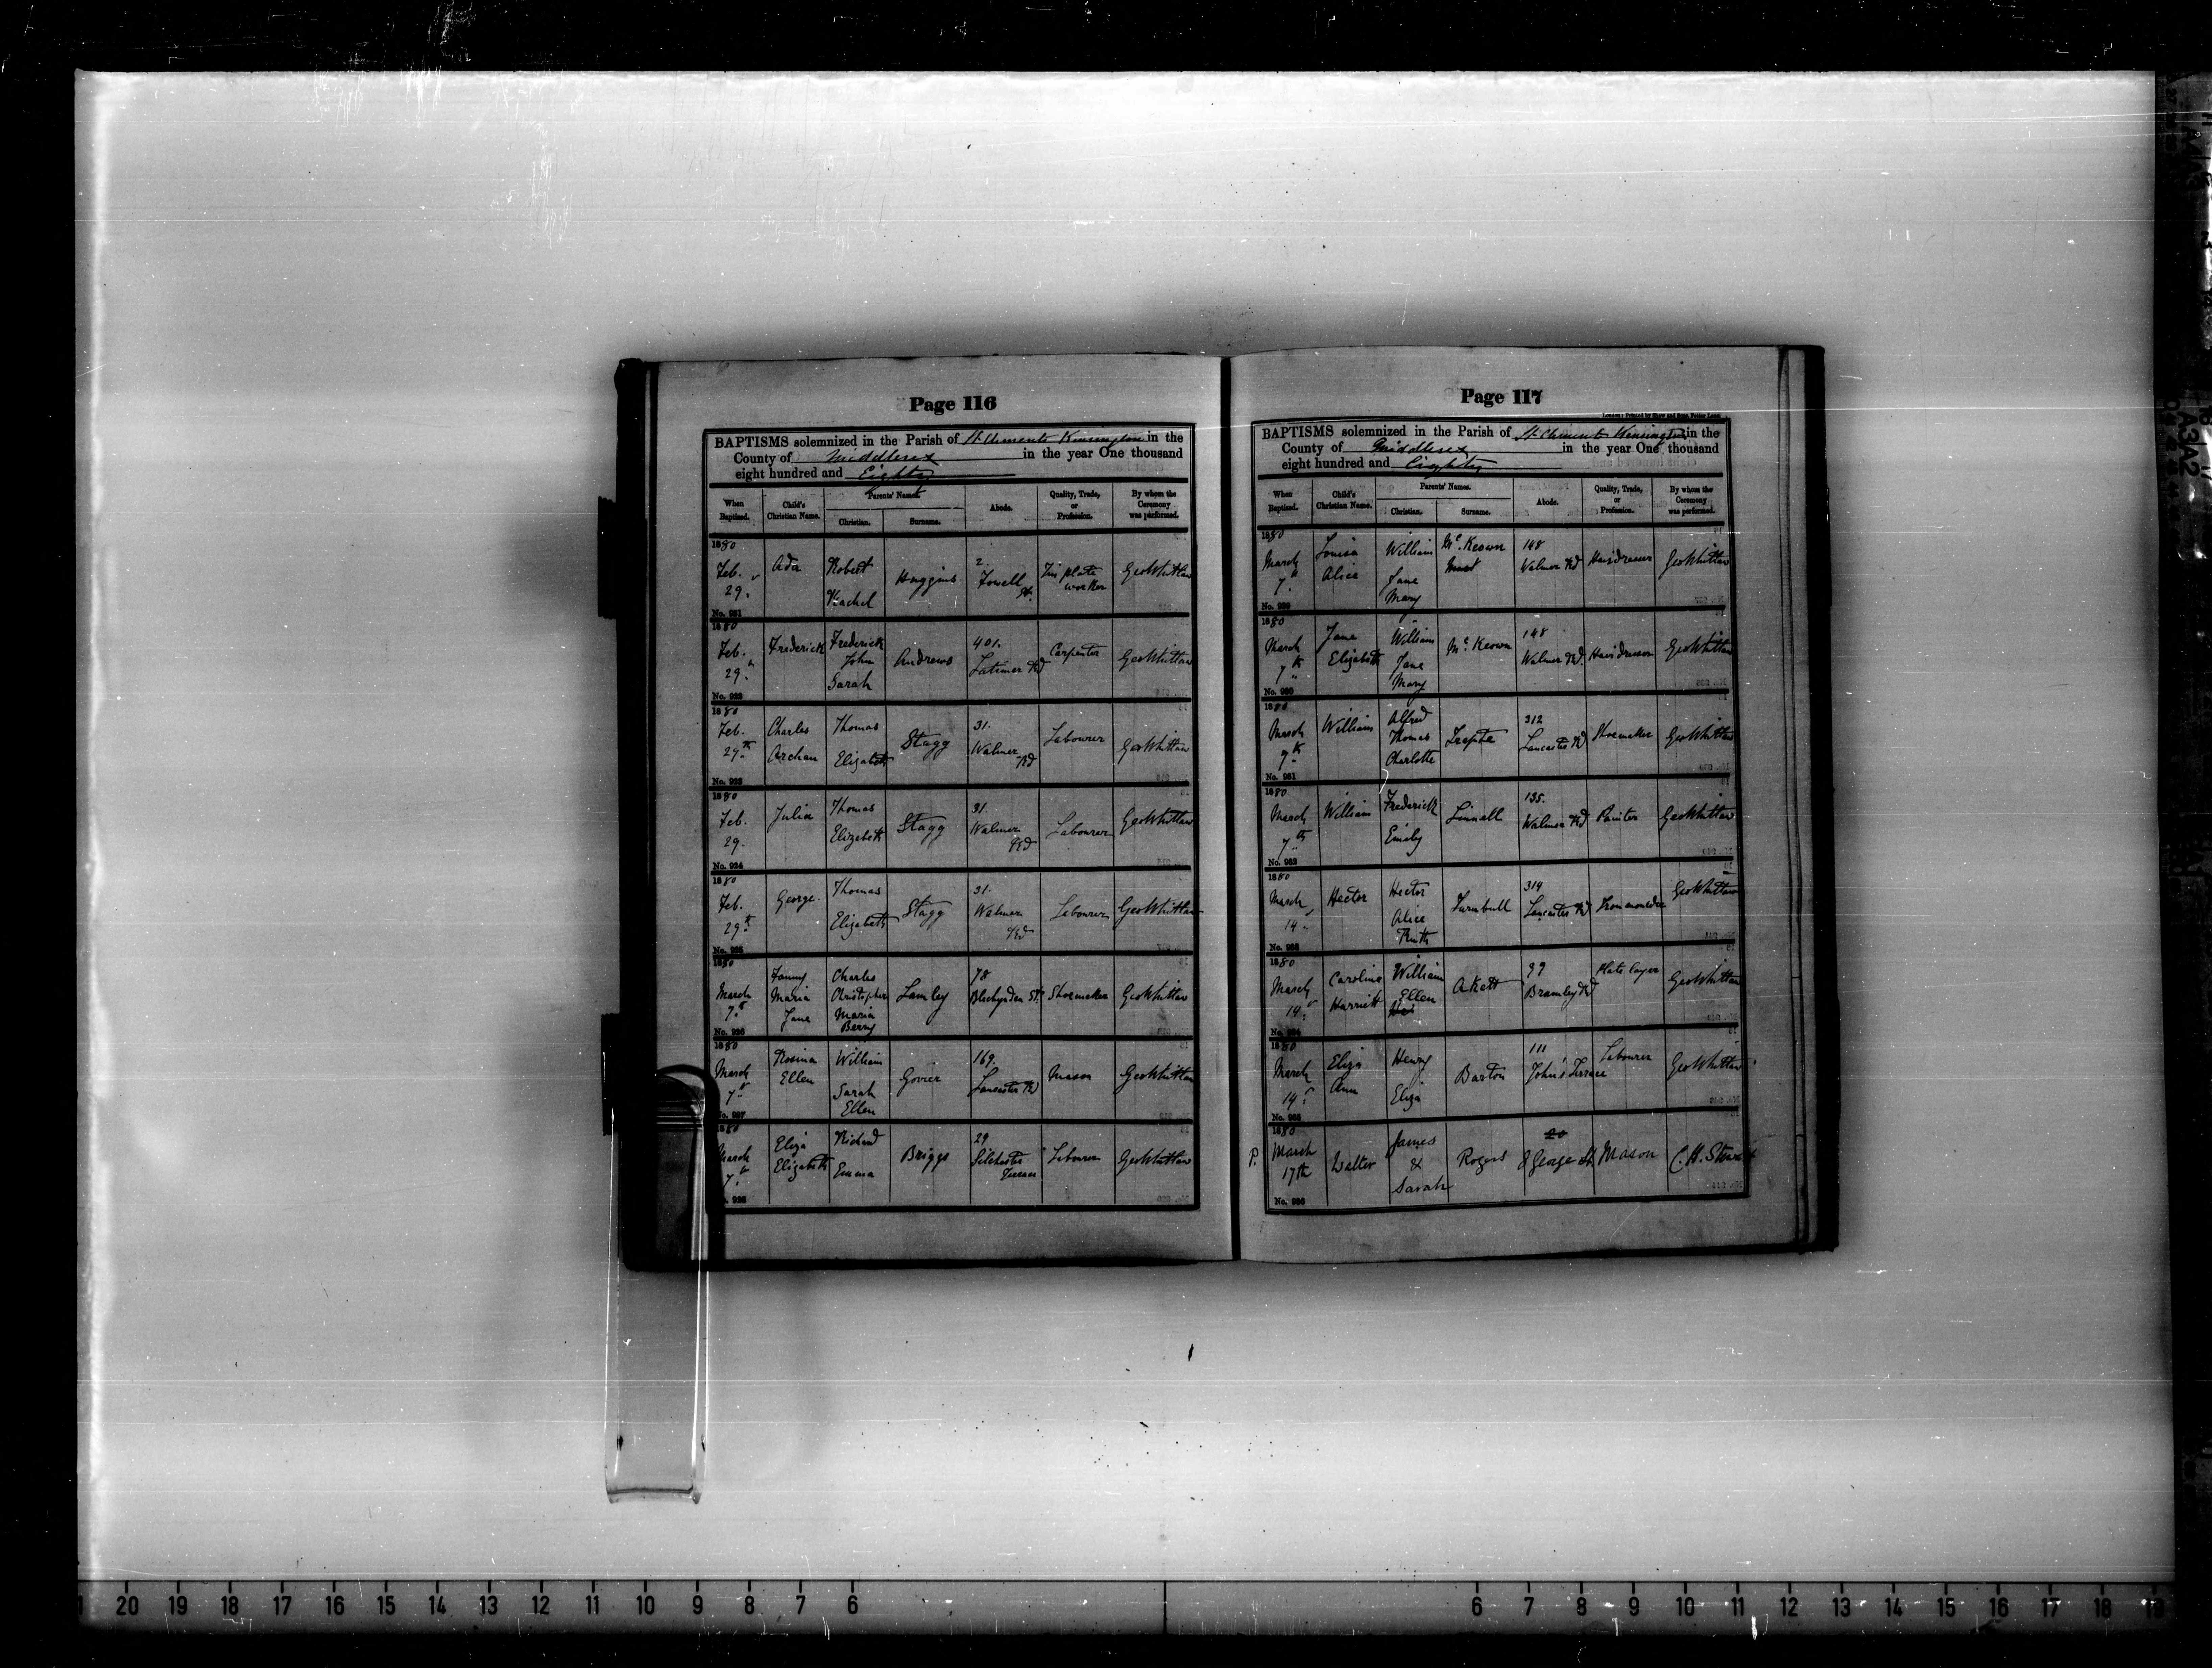 Page 116
BAPTISMS solemnized in the Parish of St Clements Kensington in the
County of Middlesex in the year One thousand
eight hundred and Eighty
When Baptized. Child's Christian Name. Parents' Names. Christian. Surname. Abode. Quality, Trade, or Profession. By whom the Ceremony was performed.
1880 Feb. 29. No. 921 Ada Robert Rachel Huggins 2. Fowell St. Tin plate worker Geo Whittaw
1880 Feb. 29. No. 922 Frederick Frederick John Sarah Andrews 401. Latimer Rd Carpenter
1880 Feb. 29th No. 923 Charles Archan Thomas Elizabeth Stagg 31. Walmer Rd Labourer
1880 Feb. 29. No. 924 Julia Thomas Elizabeth Stagg 31. Walmer Rd Labourer
1880 Feb. 29th No. 925 George Thomas Elizabeth Stagg 31. Walmer Rd Labourer
1880 March 7th No. 926 Fanny Maria Jane Charles Christopher Maria Berry Lamley 78 Blechynden St. Shoemaker
1880 March 7th No. 927 Rosina Ellen William Sarah Ellen Govier 169. Lancaster Rd Mason
1880 March 7th No. 928 Eliza Elizabeth Richard Emma Briggs 29 Silchester Terrace Labourer
Page 117
London: Printed by Shaw and Sons, Fetter Lane.
BAPTISMS solemnized in the Parish of St Clements Kensington in the
County of Middlesex in the year One thousand
eight hundred and Eighty
When Baptized. Child's Christian Name. Parents' Names. Christian. Surname. Abode. Quality, Trade, or Profession. By whom the Ceremony was performed.
1880 March 7th No. 929 Louisa Alice William Jane Mary Mc.Keown 148 Walmer Rd
1880 March 7th No. 930 Jane Elizabeth William Jane Mary Mc.Keown 148 Walmer Rd.
1880 March 7th No. 931 William Alfred Thomas Charlotte 312 Lancaster Rd Shoemaker
1880 March 7th No. 932 William Frederick Emily Linnell 135. Walmer Rd Painter
1880 March 14. No. 933 Hector Hector Alice Ruth Turnbull 314 Lancaster Rd
1880 March 14. No. 934 Caroline Harriett William Ellen Akett 99 Bramley Rd Plate layer
1880 March 14. No. 935 Eliza Ann Henry Eliza Barton 111 John's Terrace Labourer
P. 1880 March 17th No. 936 Walter James & Sarah Rogers 8 George St Mason C. H.
20 19 18 17 16 15 14 13 12 11 10 9 8 7 6 6 7 8 9 10 11 12 13 14 15 16 17 18 19